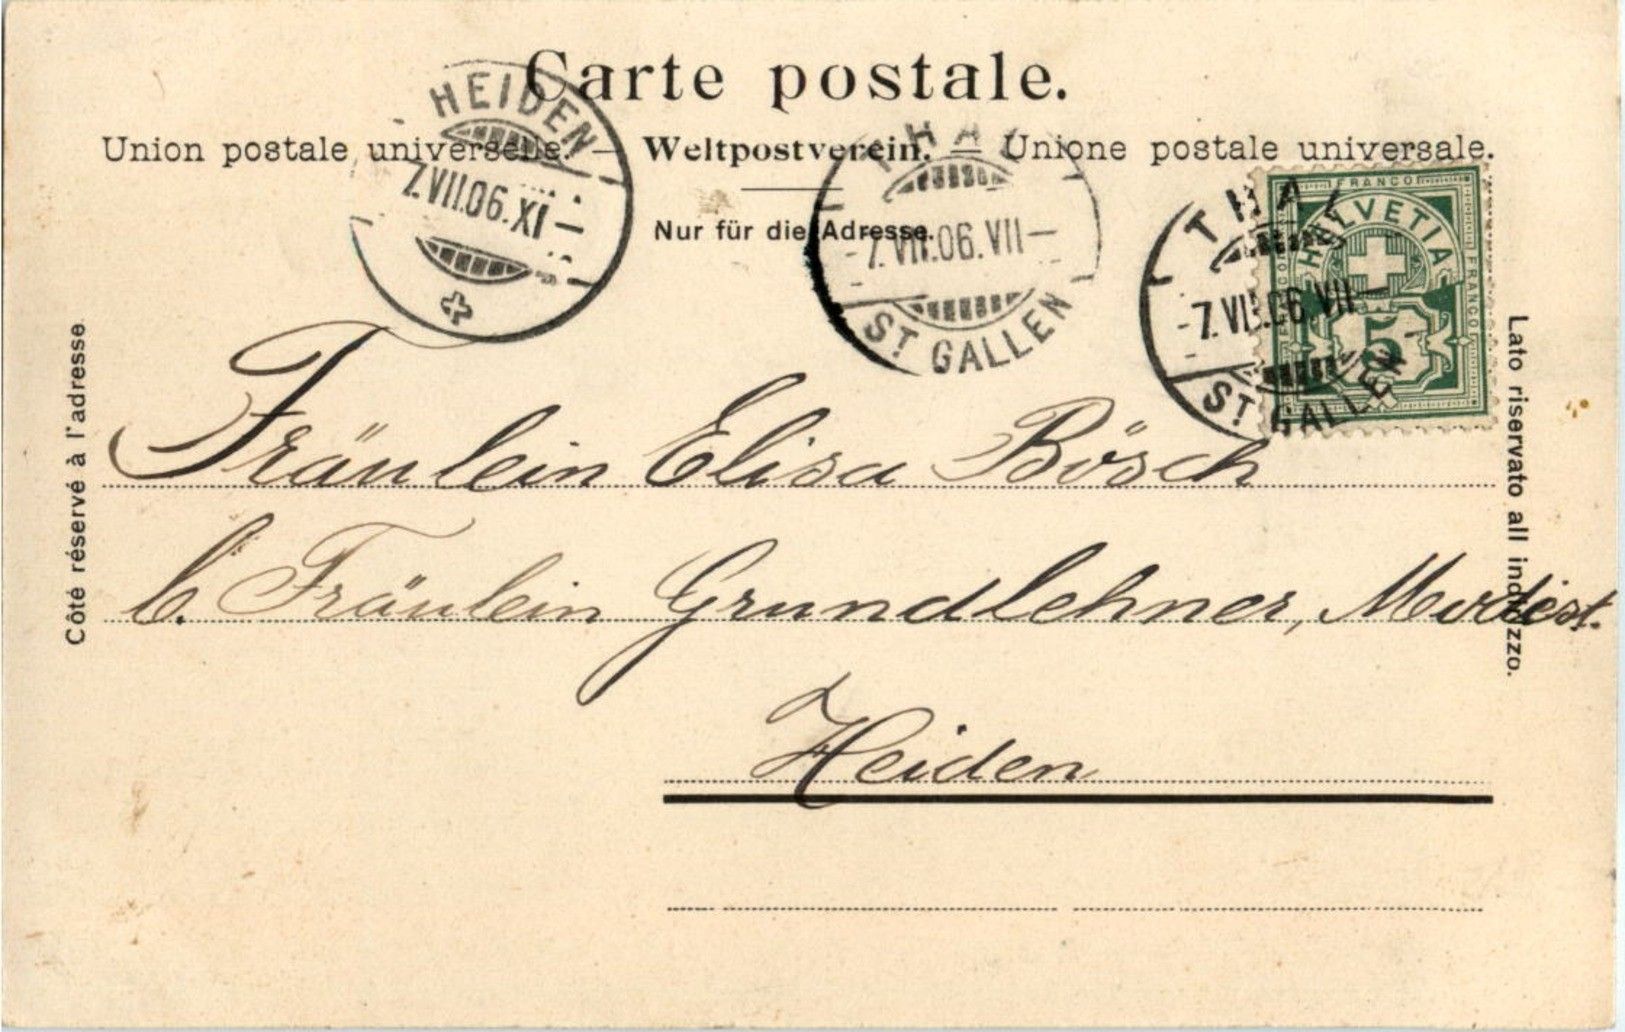 Carte postale.
Union postale universelle. — Weltpostverein. — Unione postale universale.
Nur für die Adresse.
HEIDEN
7.VII.06.XI—
THAL
-7.VII.06.VII—
ST. GALLEN
THAL
-7.VII.06.VII—
ST. GALLEN
FRANCO
HELVETIA
FRANCO
FRANCO
5
Côté réservé à l'adresse.
Lato riservato all indirizzo.
Fräulein Elisa Bösch
b. Fräulein Grundlehner, Modist.
Heiden